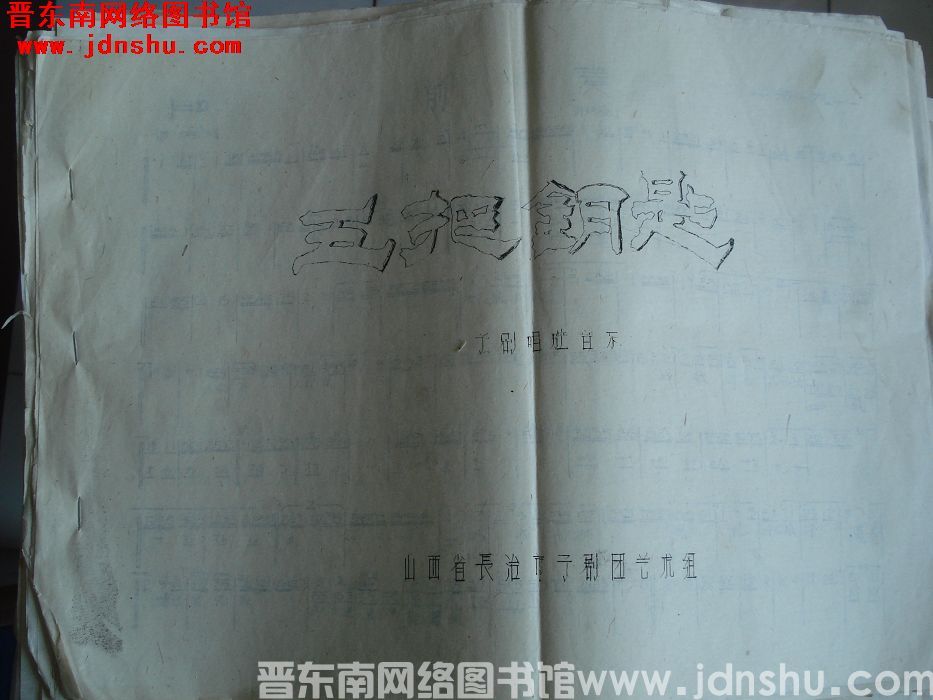 晋东南网络图书馆
www.jdnshu.com
五把钥匙
予剧唱腔音乐
山西省長治市予剧团艺术组
晋东南网络图书馆www.jdnshu.com